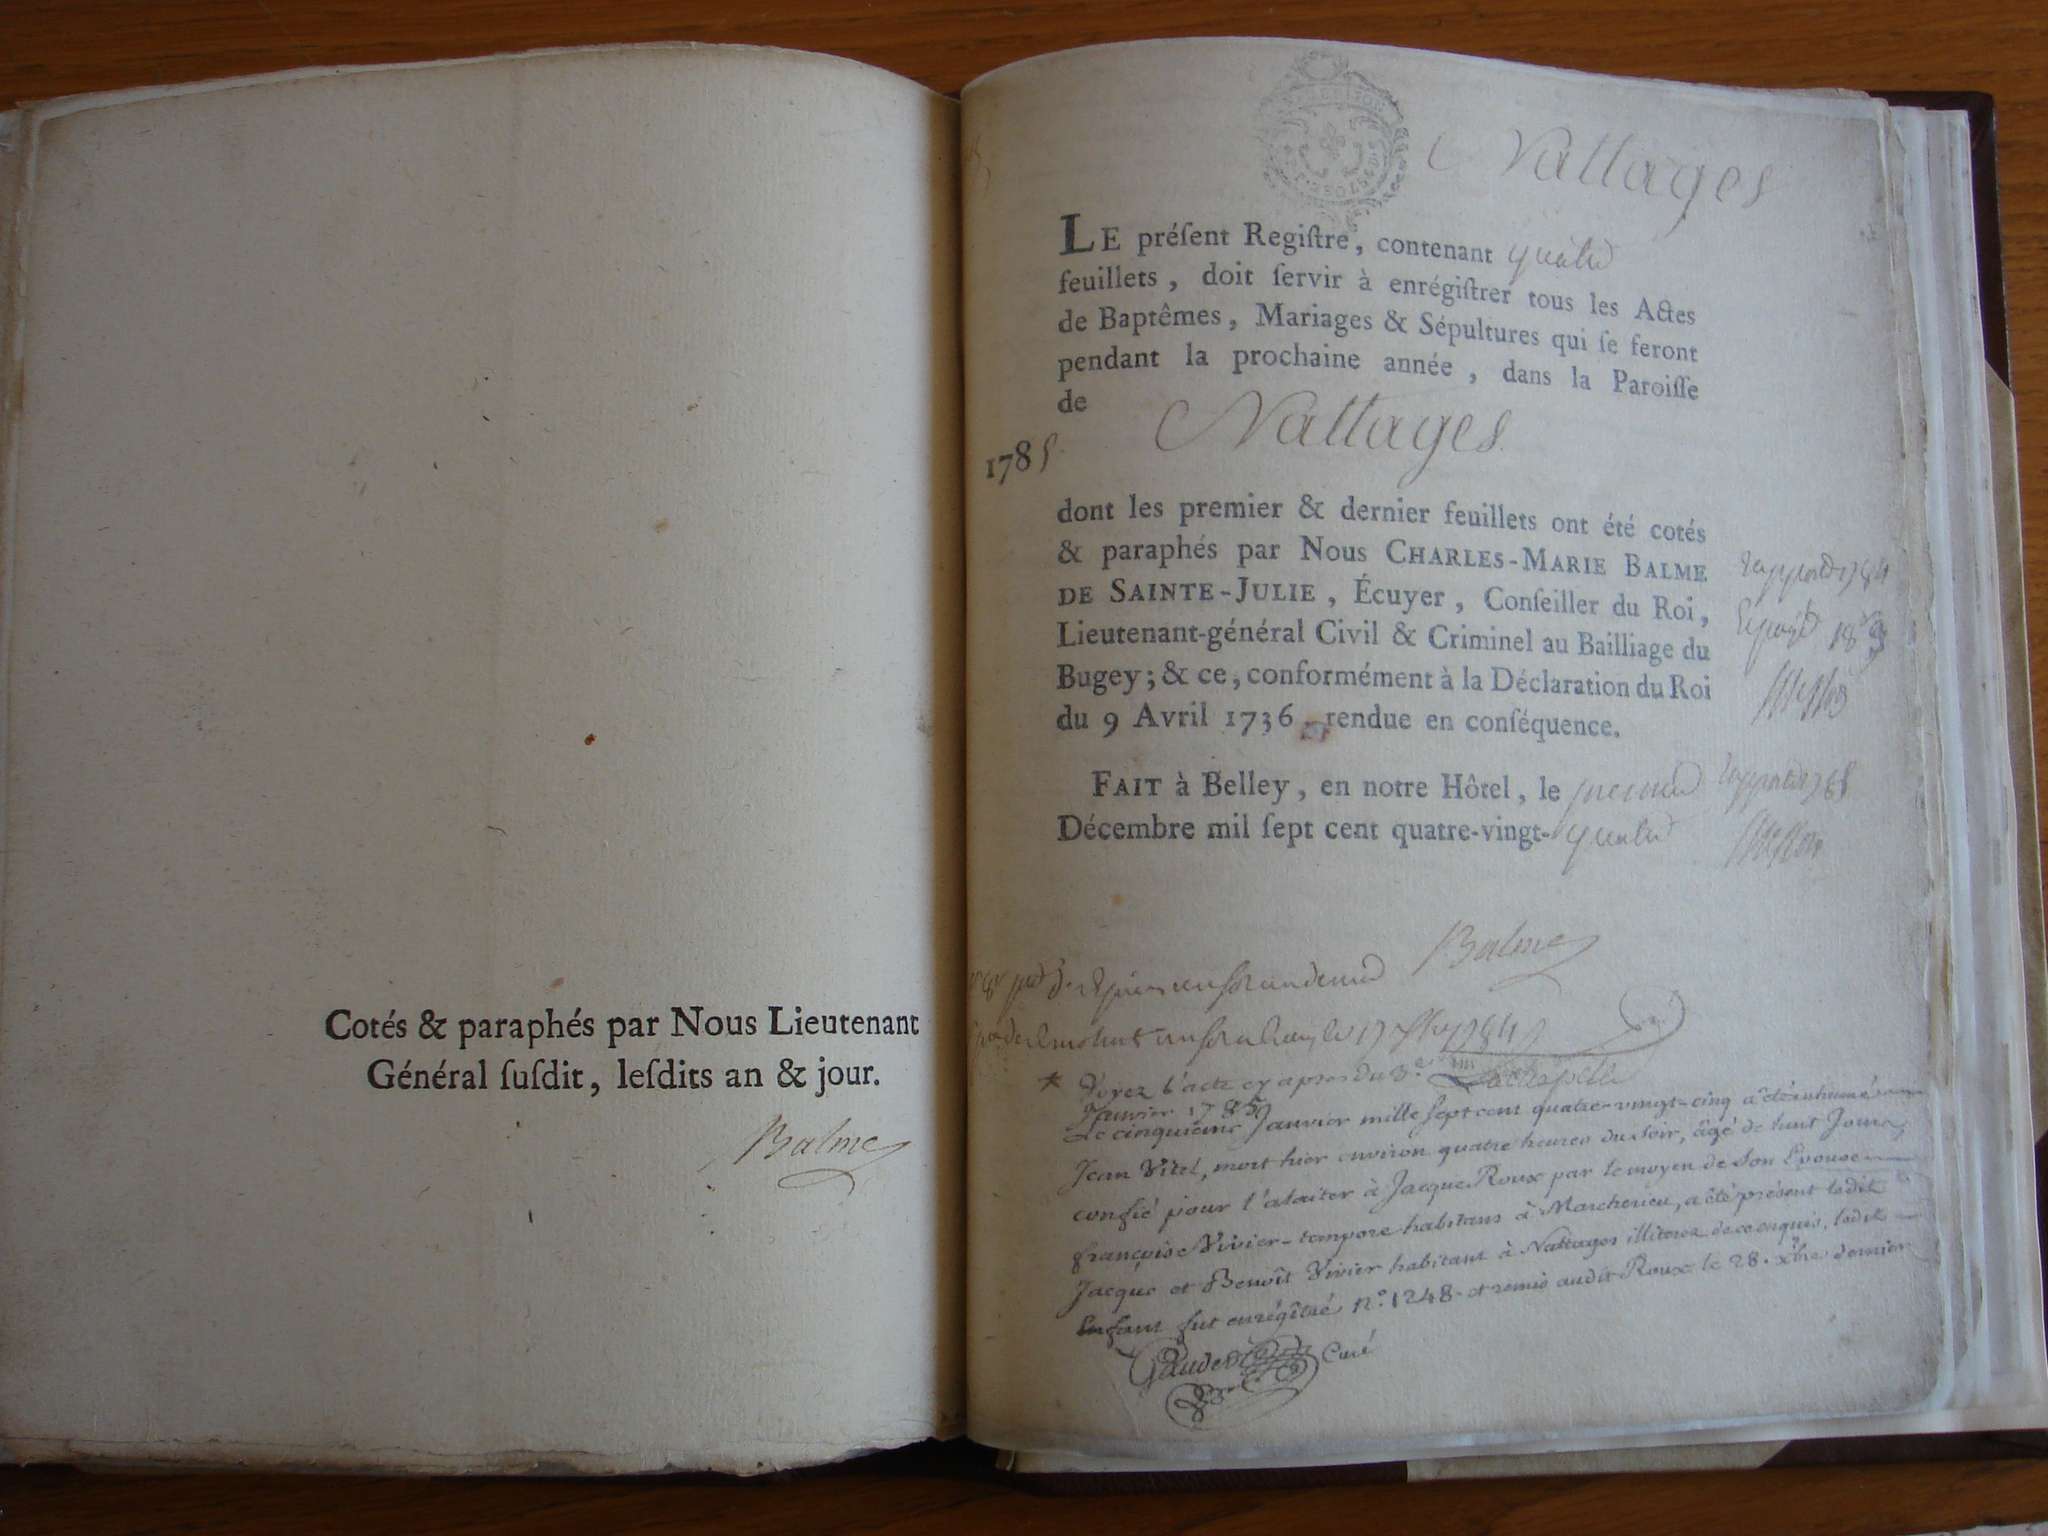 Cotés & paraphés par Nous Lieutenant
Général ſuſdit, leſdits an & jour.
Balme
Nattages
LE préſent Regiſtre, contenant quatre
feuillets, doit ſervir à enrégiſtrer tous les Actes
de Baptêmes, Mariages & Sépultures qui ſe feront
pendant la prochaine année, dans la Paroiſſe
de Nattages
1785
dont les premier & dernier feuillets ont été cotés
& paraphés par Nous CHARLES-MARIE BALME
DE SAINTE-JULIE, Écuyer, Conſeiller du Roi,
Lieutenant-général Civil & Criminel au Bailliage du
Bugey; & ce, conformément à la Déclaration du Roi
du 9 Avril 1736, rendue en conſéquence.
FAIT à Belley, en notre Hôtel, le premier
Décembre mil ſept cent quatre-vingt-quatre
Balme
* Voyez l'acte cy apres du 3.e
Janvier 1785
Le cinquieme Janvier mille sept cent quatre-vingt-cinq a été inhumé
Jean Vitel, mort hier environ quatre heures du soir, âgé de huit Jours,
confié pour l'alaiter à Jacque Roux par le moyen de son Epouse
françoise Vivier-tempore habitans à Marcherieu, a été présent ledit
Jacque et Benoît Vivier habitant à Nattages illiterez de ce enquis, ledit
Enfant fut enrégîtré n.º 1248. et remis audit Roux le 28. xbre dernier
Curé